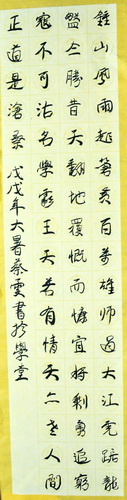 鍾山風雨起蒼黄百萬雄师過大江虎踞龍
盤今勝昔天翻地覆慨而慷宜將剩勇追窮
寇不可沽名學霸王天若有情天亦老人間
正道是滄桑 戊戌年大暑蔡雯書於學堂